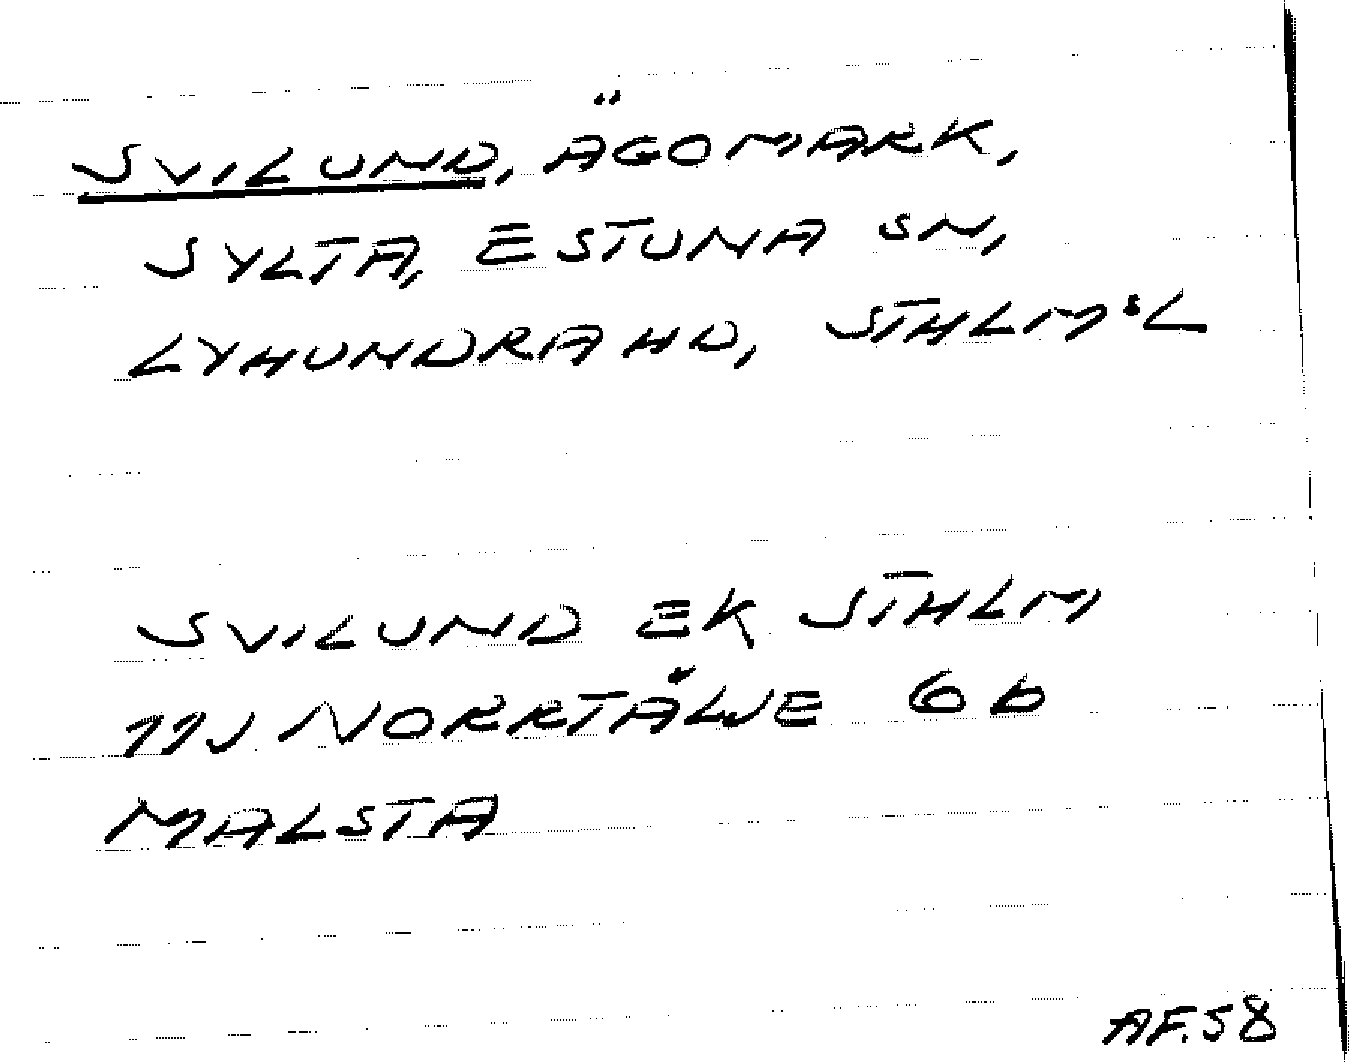 SVILUND, ÄGOMARK,
SYLTA, ESTUNA SN,
LYHUNDRA HD, STHLMS L
SVILUND EK STHLM
11J NORRTÄLJE 6b
MALSTA
AF.58